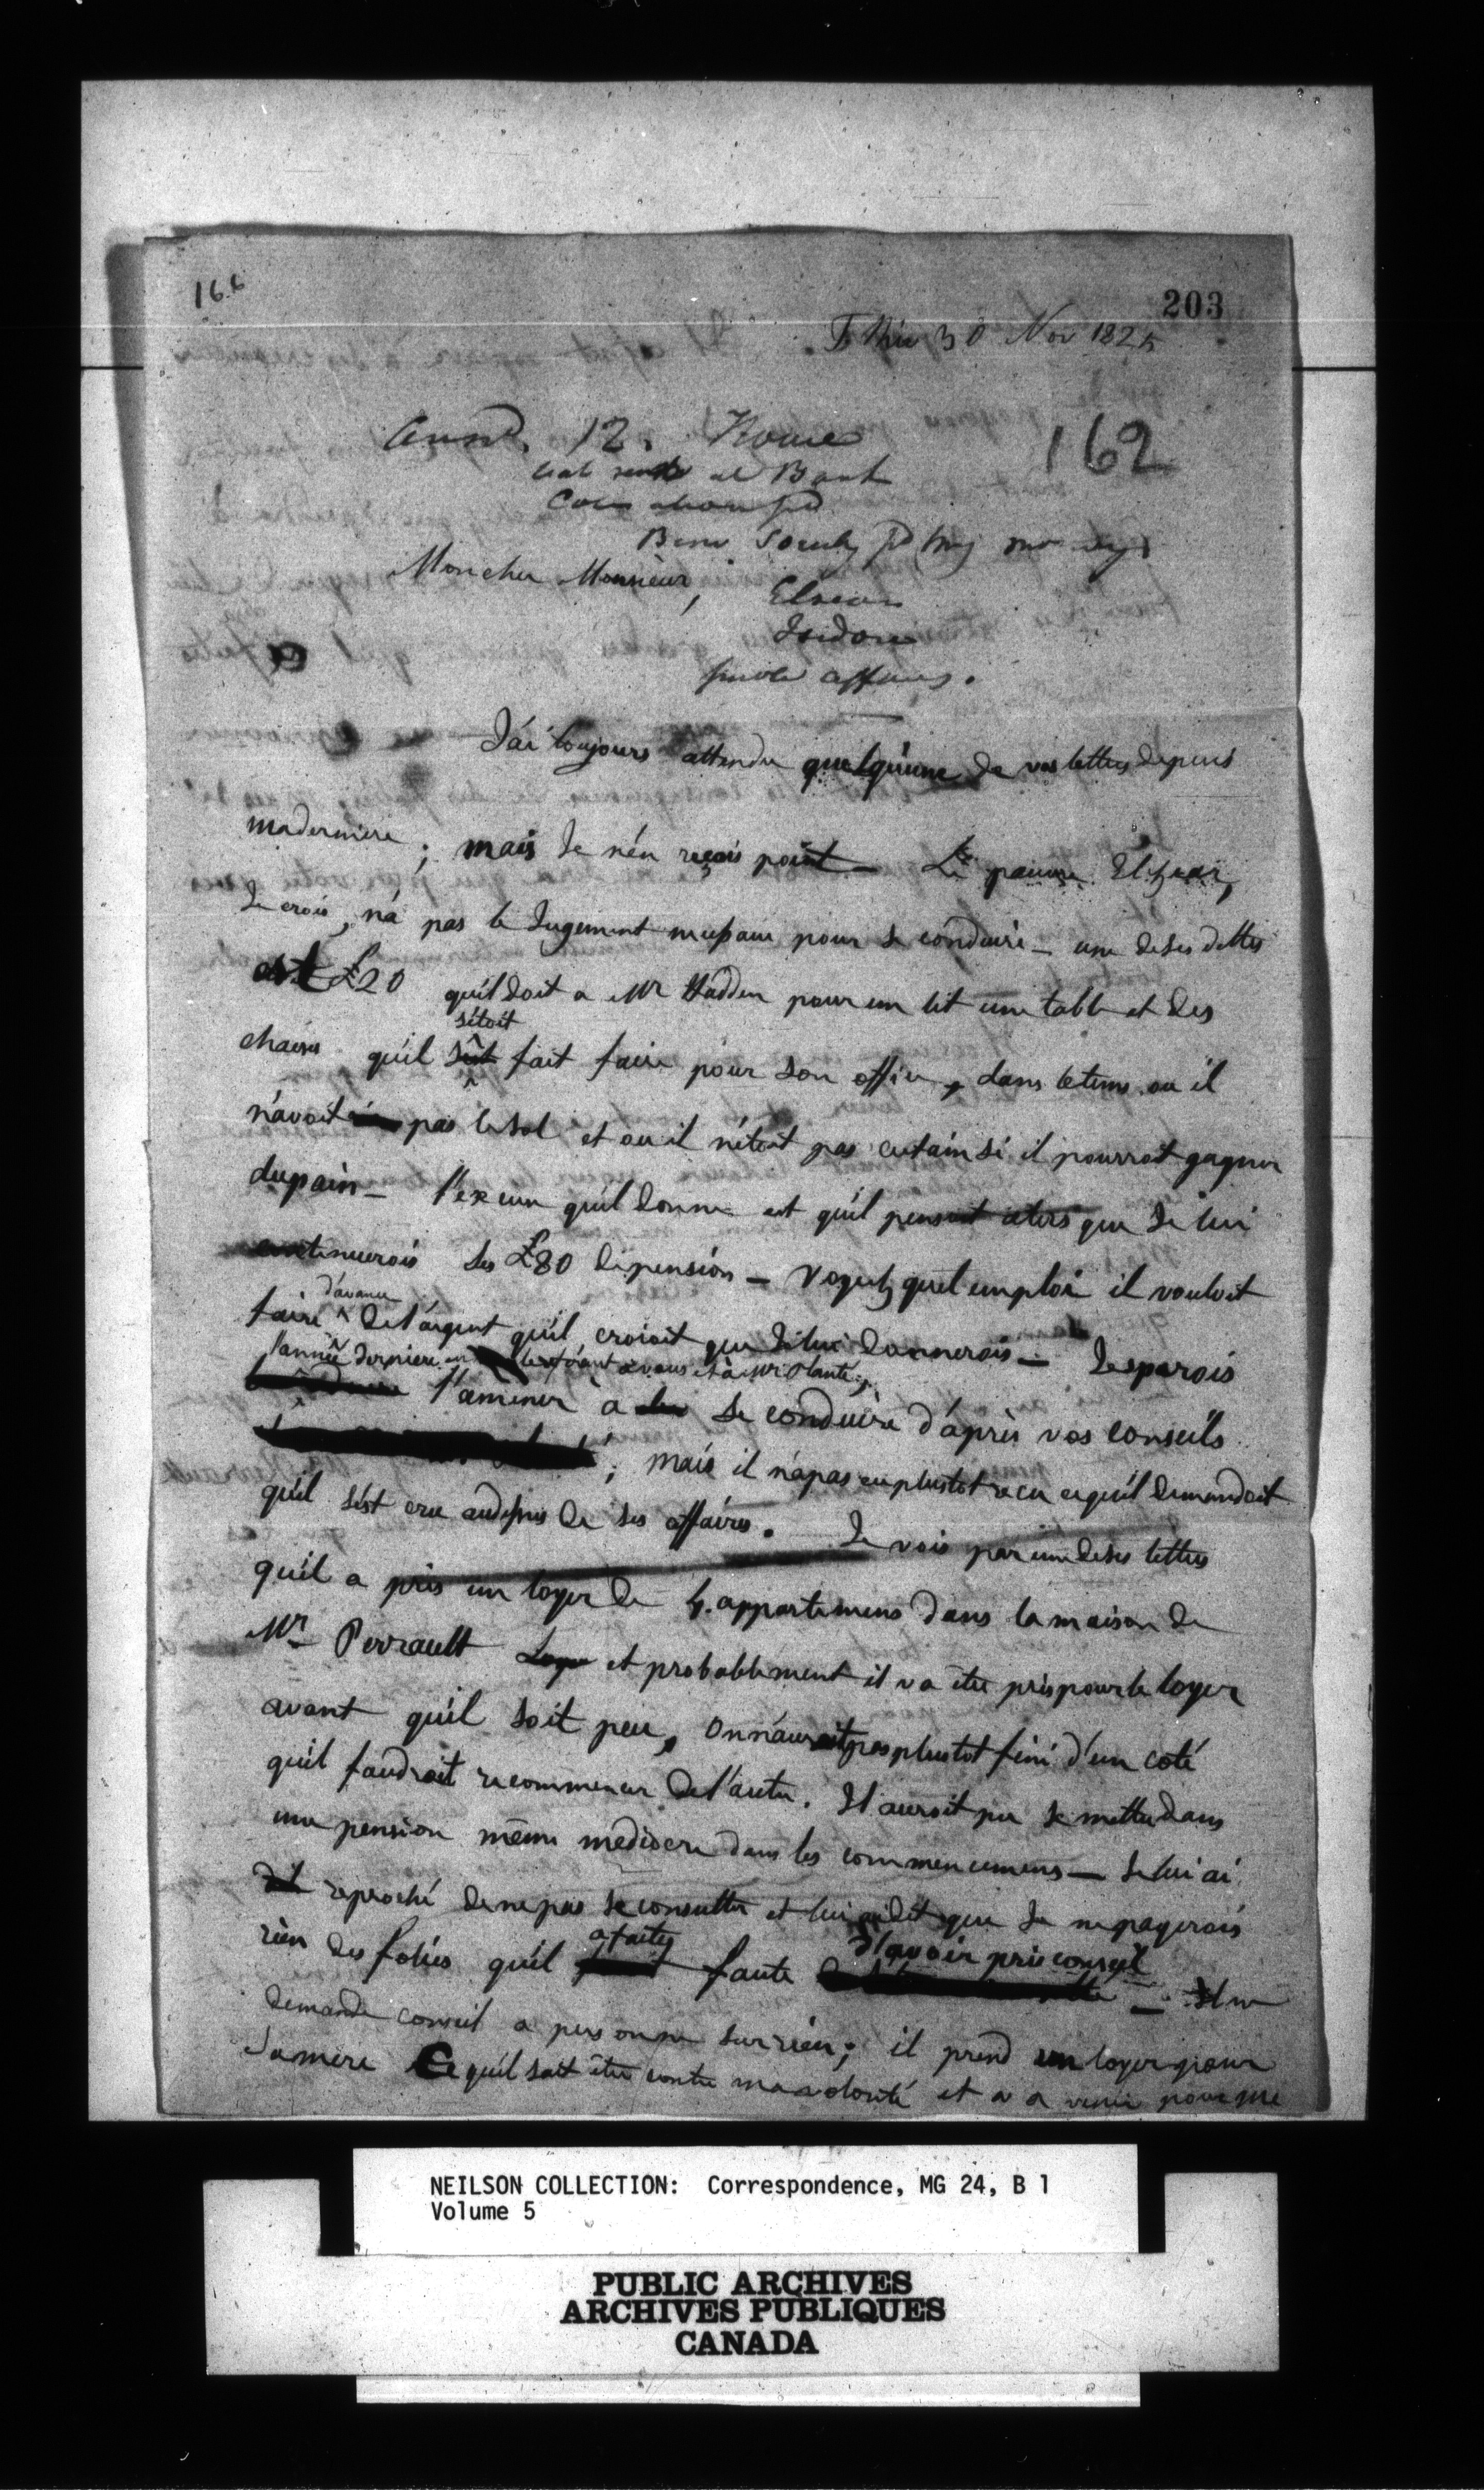 166
203
30 Nov 1825
12.
162
Mon cher Monsieur,
Isidore
affaires.
J'ai toujours attendu quelqu'une de vos lettres depuis
ma derniere; mais Je n'en reçois point — Le pauvre Elzear,
Je crois, n'a pas le Jugement necessaire pour se conduire — une de ses dettes
est £20 qu'il doit a Mr Hadden pour un lit une table et des
s'étoit
chaises qu'il fait faire pour son office, dans le tems ou il
n'avoit pas le sol et ou il n'étoit pas certain si il pourroit gagner
du pain — l'excuse qu'il donne est qu'il pensoit alors que Je lui
continuerois ses £80 de pension — voyez quel emploi il vouloit
d'avance
faire de l'argent qu'il croioit que Je lui donnerois — J'esperois
l'année derniere en à vous et à Mr Plante,
l'amener à se conduire d'après vos conseils
; mais il n'a pas eu plustot reçu ce qu'il demandoit
qu'il s'est cru au dessus de ses affaires. Je vois par une de ses lettres
qu'il a pris un loyer de 4. appartemens dans la maison de
Mr Perrault et probablement il va être pris pour le loyer
avant qu'il soit peu, on n'auroit pas plustot fini d'un coté
qu'il faudroit recommencer de l'autre. Il auroit pu se mettre dans
une pension même mediocre dans les commencemens — Je lui ai
reproché de ne pas se consulter et lui ai dit que Je ne payerois
a faites d'avoir pris conseil
rien des folies qu'il faute — Il ne
demande conseil a personne sur rien; il prend un loyer pour
sa mere Ce qu'il sait être contre ma volonté et va venir pour me
NEILSON COLLECTION: Correspondence, MG 24, B 1
Volume 5
PUBLIC ARCHIVES
ARCHIVES PUBLIQUES
CANADA